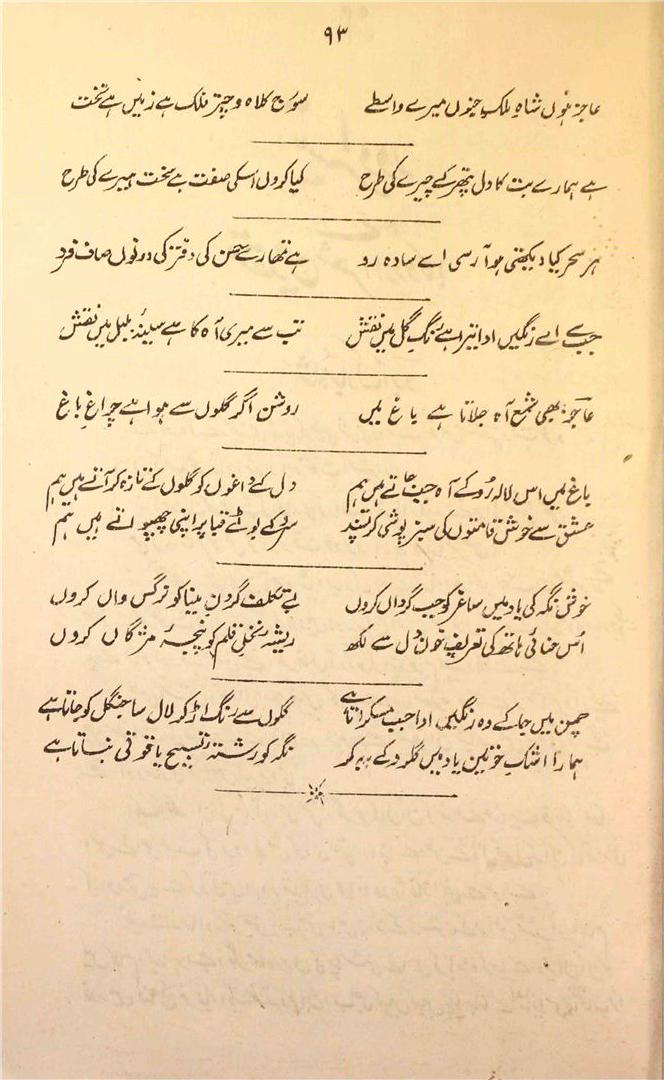 ۹۳
عاجز ہوں شاہِ ملکِ جنوں میرے واسطے سورج کلاہ و چتر فلک ہے زمیں ہے تخت
ہے ہمارے بت کا دل پتھر کے چیرے کی طرح کیا کروں اسکی صفت ہے سخت ہیرے کی طرح
ہر سحر کیا دیکھتی ہو آرسی اے سادہ رو ہے تمھارے حسن کی دفتر کی دونوں صاف فرد
جب سے اے رنگیں ادا تیرا ہے رنگِ گل میں نقش تب سے میری آہ کا ہے سینۂ بلبل میں نقش
عاجز بھی شمع آہ جلاتا ہے باغ میں روشن اگر گلوں سے ہوا ہے چراغِ باغ
باغ میں اس لالہ رُو کے آہ جب جاتے ہیں ہم دل کے داغوں کو گلوں کے تازہ کر آتے ہیں ہم
عشق سے خوش قامتوں کی سبز پوشی کر پسند سرو کے بوٹے قبا پر اپنی چھپواتے ہیں ہم
خوش نگہ کی یاد میں ساغر کو جب گرداں کروں بے تکلف گردنِ مینا کو نرگس واں کروں
اُس حنائی ہاتھ کی تعریف خونِ دل سے لکھ ریشۂ نخلِ قلم کو پنجۂ مژگاں کروں
چمن میں جا کے وہ رنگیں ادا جب مسکراتا ہے گلوں سے رنگ اڑ کر لال سا جنگل کو جاتا ہے
ہمارا اشکِ خونیں یاد میں گلرو کے بہہ کر نگہ کو رشتۂ تسبیح یاقوتی بناتا ہے